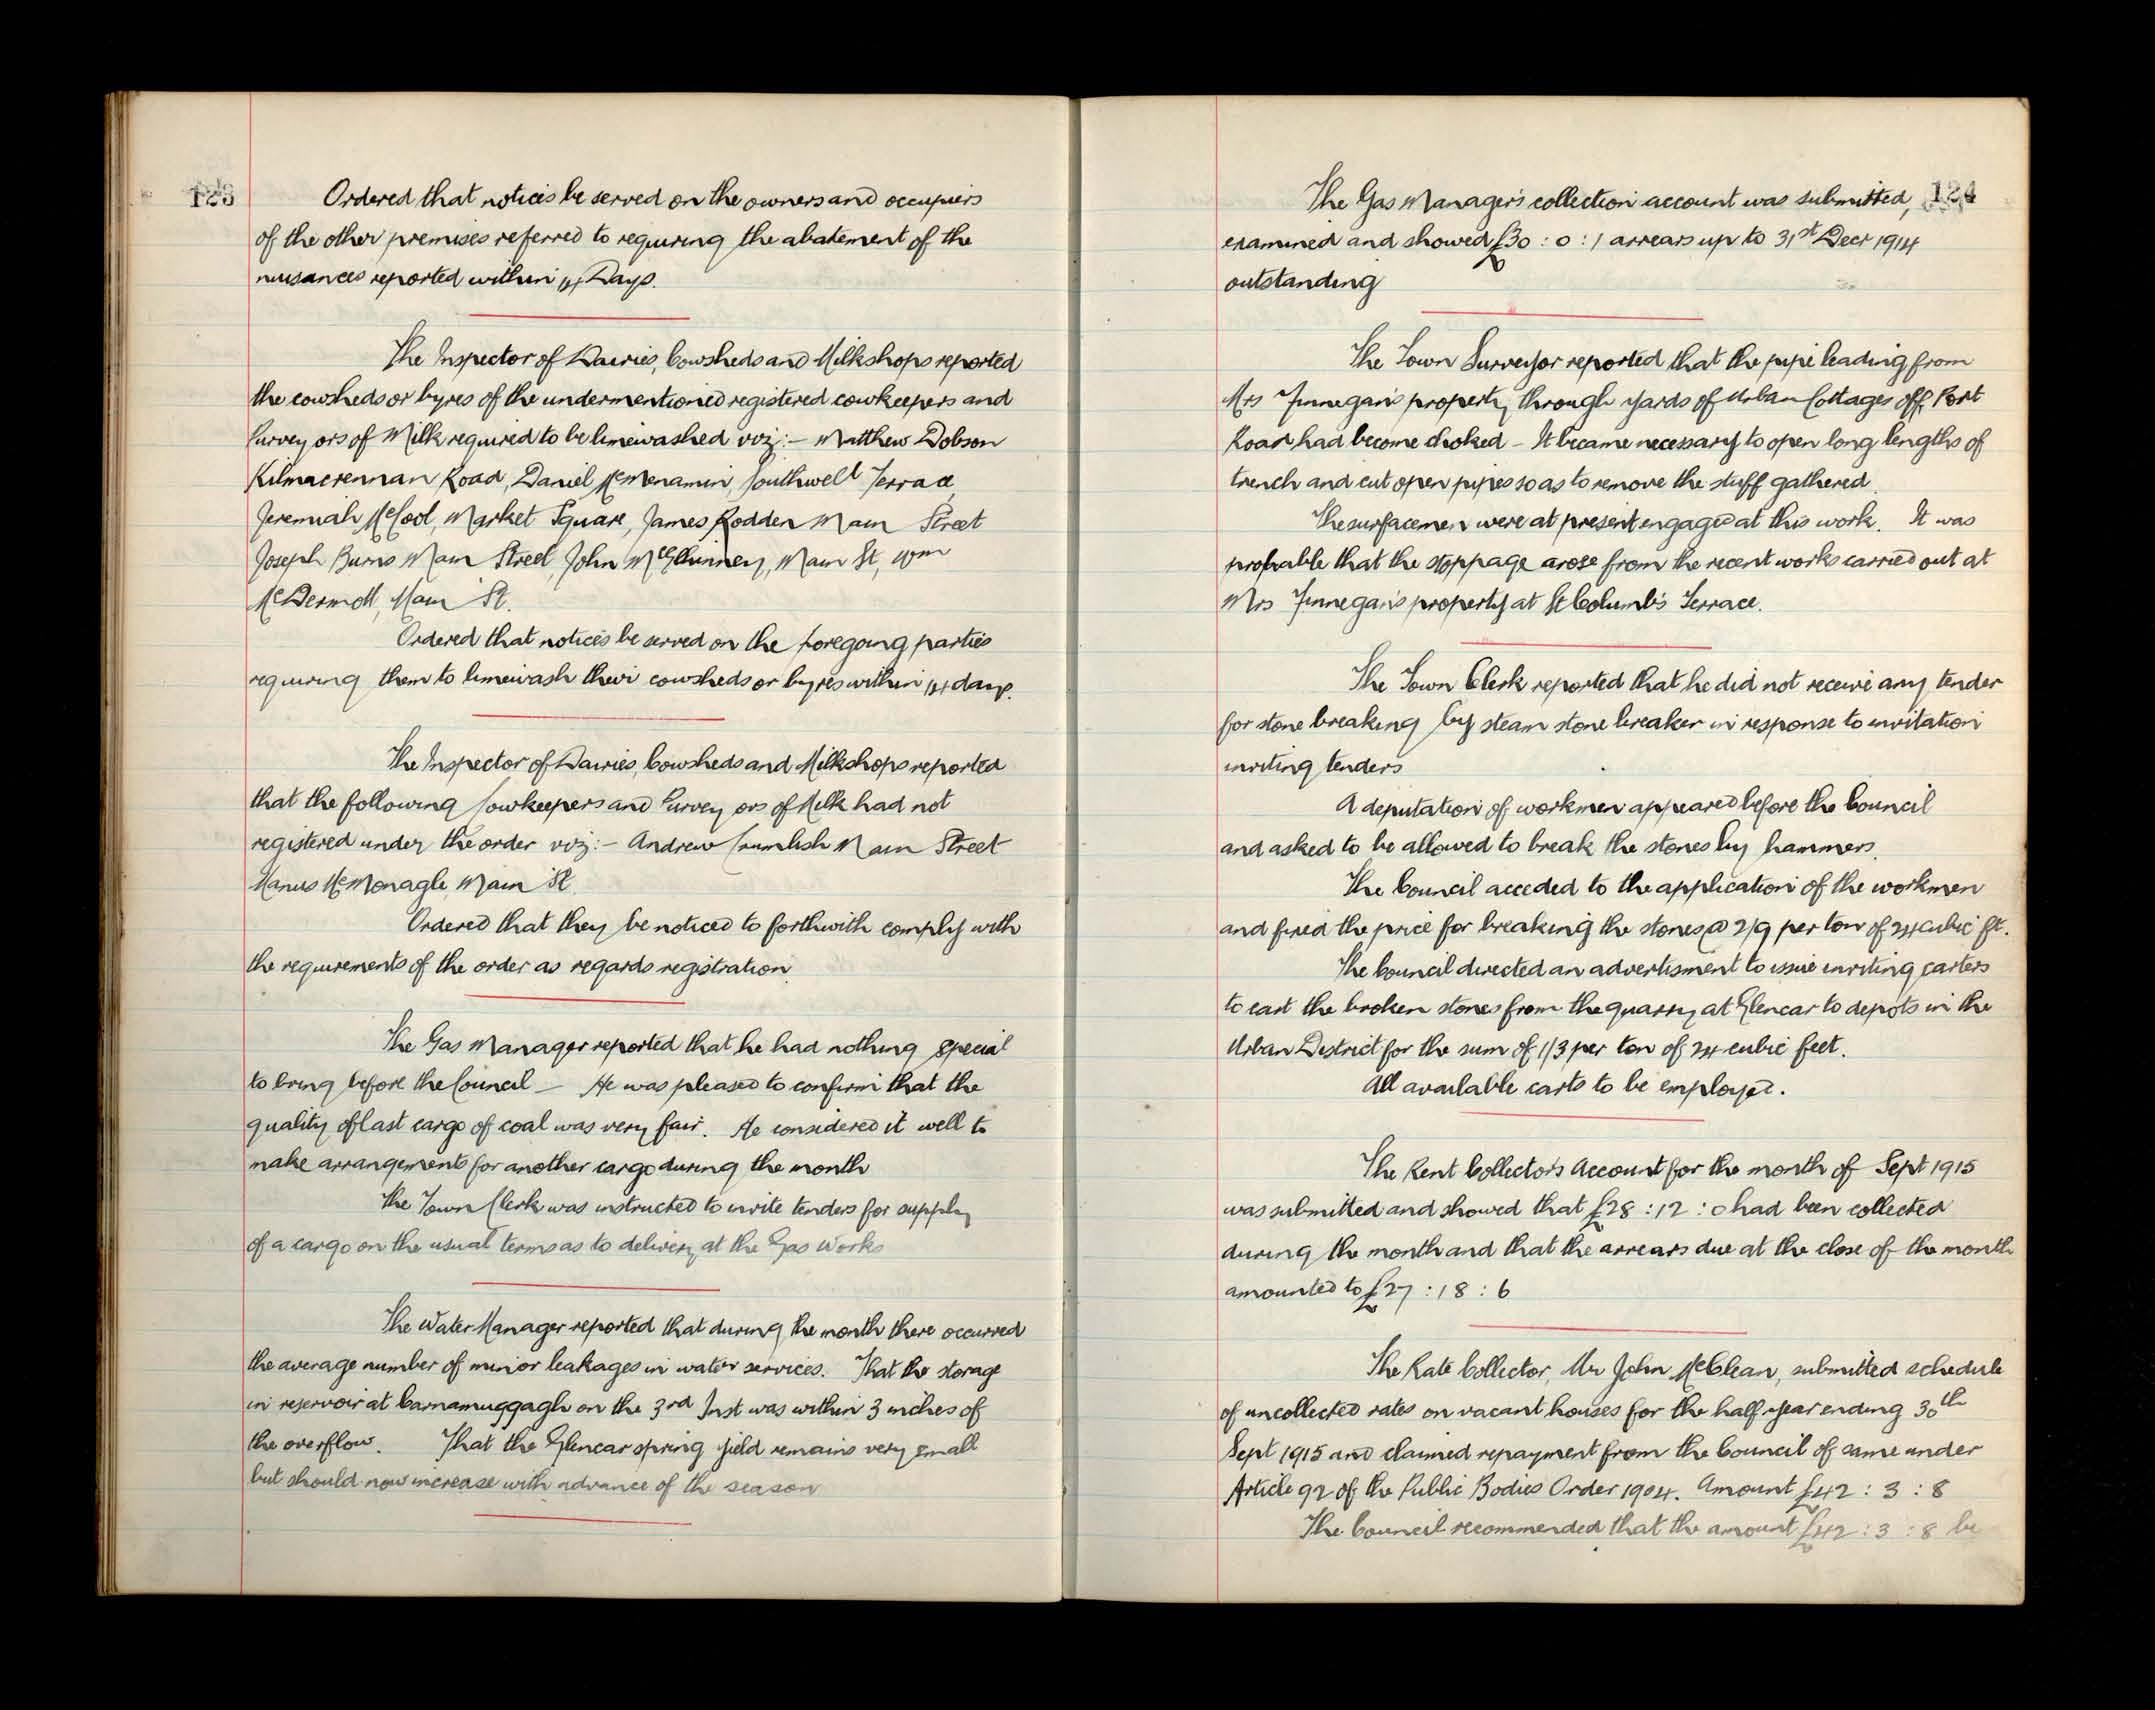 123
Ordered that notices be served on the owners and occupiers
of the other premises referred to requiring the abatement of the
nuisances reported within 14 Days.
The Inspector of Dairies, Cowsheds and Milkshops reported
the cowsheds or byres of the undermentioned registered cowkeepers and
Purveyors of Milk required to be limewashed viz:- Matthew Dobson
Kilmacrennan Road, Daniel McMenamin, Southwell Terrace,
Jeremiah McCool, Market Square, James Rodden Main Street
Joseph Burns Main Street, John McGlhinney, Main St, Wm
McDermott, Main St.
Ordered that notices be served on the foregoing parties
requiring them to limewash their cowsheds or byres within 14 days.
The Inspector of Dairies, Cowsheds and Milkshops reported
that the following Cowkeepers and Purveyors of Milk had not
registered under the order viz:- Andrew Crumlish Main Street
Manus McMonagle, Main St.
Ordered that they be noticed to forthwith comply with
the requirements of the order as regards registration.
The Gas Manager reported that he had nothing special
to bring before the Council - He was pleased to confirm that the
quality of last cargo of coal was very fair. He considered it well to
make arrangements for another cargo during the month
The Town Clerk was instructed to invite tenders for supply
of a cargo on the usual terms as to delivery at the Gas Works
The Water Manager reported that during the month there occurred
the average number of minor leakages in water services. That the storage
in reservoir at barnamuggagh on the 3rd Inst was within 3 inches of
the overflow. That the Glencar spring yield remains very small
but should now increase with advance of the season
124
The Gas Manager's collection account was submitted,
examined and showed £30 : 0 : 1 arrears up to 31st Decr 1914
outstanding
The Town Surveyor reported that the pipe leading from
Mrs Finnegan's property through yards of Urban Cottages off Port
Road had become choked - It became necessary to open long lengths of
trench and cut open pipes so as to remove the stuff gathered.
The surfacemen were at present engaged at this work. It was
probable that the stoppage arose from the recent works carried out at
Mrs Finnegan's property at St Columb's Terrace.
The Town Clerk reported that he did not receive any tender
for stone breaking by steam stone breaker in response to invitation
inviting tenders
A deputation of workmen appeared before the Council
and asked to be allowed to break the stones by hammers.
The Council acceded to the application of the workmen
and fixed the price for breaking the stones @ 2/9 per ton of 24 cubic ft.
The Council directed an advertisment to issue inviting carters
to cart the broken stones from the quarry at Glencar to depots in the
Urban District for the sum of 1/3 per ton of 24 cubic feet.
All available carts to be employed.
The Rent Collector's Account for the month of Sept 1915
was submitted and showed that £28 : 12 : 0 had been collected
during the month and that the arrears due at the close of the month
amounted to £27 : 18 : 6
The Rate Collector, Mr John McClean, submitted schedule
of uncollected rates on vacant houses for the half year ending 30th
Sept 1915 and claimed repayment from the Council of same under
Article 92 of the Public Bodies Order 1904. Amount £42 : 3 : 8
The Council recommended that the amount £42 : 3 : 8 be